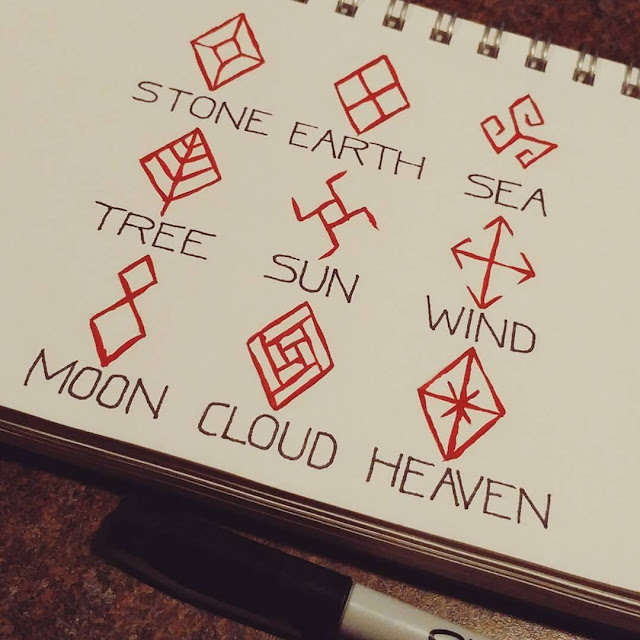 STONE EARTH SEA
TREE SUN WIND
MOON CLOUD HEAVEN